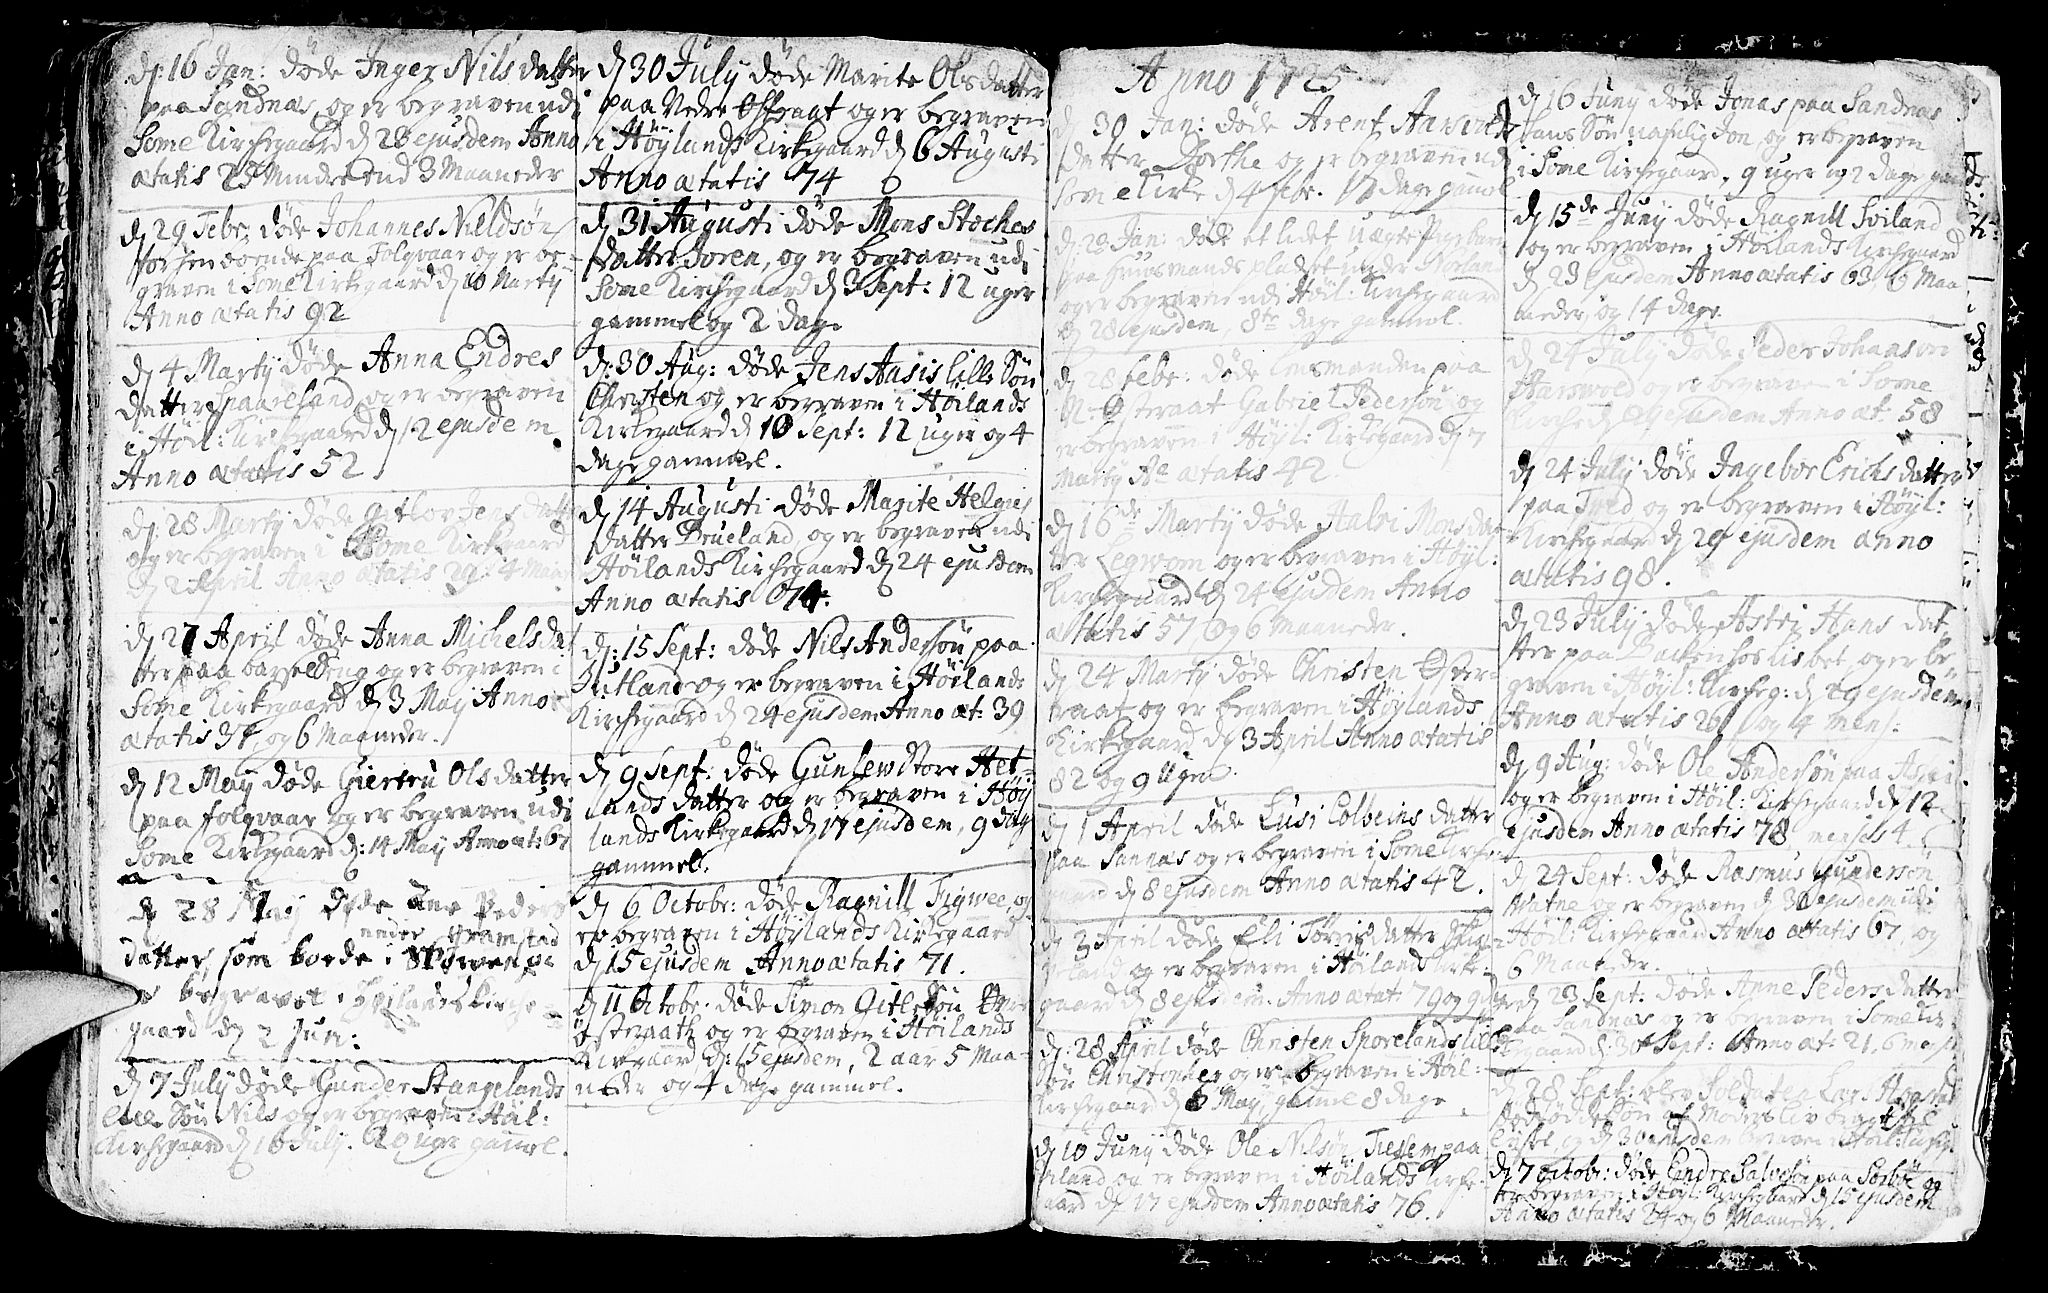 d: 16 Jan: døde Inger Nils datter
paa Sandnæs, og er begraven udi
Some Kirchegaard d 28 ejusdem Anno
ætatis 25 Mindre end 3 Maaneder
d 29 Febr: døde Johannes Nieldsøn
forhen boende paa Folgvaar og er be-
graven i Some Kirkegaard d 10 Martÿ
Anno ætatis 92
d 4 Martÿ døde Anna Endres
datter Spaareland, og er begraven
i Höil: Kirchegaard d 12 ejusdem
Anno ætatis 52
d: 28 Martÿ døde Gitlov Jens datter
og er begraven i Some Kirkgaard
d 2 April Anno ætatis 29: 4 Maan
d 27 April døde Anna Michels dat
ter paa barselseng og er begraven i
Some Kirkegaard d 3 Maÿ Anno
ætatis 37, og 6 Maaneder.
d 12 Maÿ døde Giertru Ols datter
paa folgvaar og er begraven udi
Some Kirkegaard d: 14 Maÿ Anno æt: 67
d 28 Maÿ døde Ane Peders
under Gramstad
datter, som boede i
begravet i Höilands Kirche-
gaard d 2 Jun:
d 7 Julÿ døde Gunder Stangelands
lille Søn Nils og er begraven i Höil:
Kirchegaard d 16 Julÿ. 20 uger gamel.
d 30 Julÿ døde Marite Ols datter
paa Nedre Ostraat og er begraven
i Höÿlands Kirkegaard d 6 Augusti
Anno ætatis 74
d 31 Augusti døde Mons Stoches
datter Soren, og er begraven udi
Some Kirchegaard d 3 Sept: 12 uger
gammel og 2 dage
d: 30 Aug: døde Jens Aasis lille Søn
Christen og er begraven i Höilands
Kirkegaard d 10 Sept: 12 uger og 4
dage gammel.
d 14 Augusti døde Marite Helges
datter Brueland, og er begraven udi
Höilands Kirchegaard d 24 ejusdem
Anno ætatis 74.
d: 15 Sept: døde Nils Andersøn paa
Jutland og er begraven i Höilands
Kirchegaard d 24 ejusdem Anno æt: 39
d 9 Sept: døde Gunlew Store Aet-
lands datter og er begraven i Höÿ
lands Kirkegaard d 17 ejusdem, 9 dage
gammel.
d 6 Octobr: døde Ragnill Figwee, og
er begraven i Höÿlands Kirkegaard
d 15 ejusdem Anno ætatis 71.
d 11 Octobr. døde Simon Gitlesøn
østeraath og er begraven i Höilands
Kirgaard, d: 15 ejusdem, 2 aar 5 Maa-
neder og 4 dage gammel.
Anno 1725
d 30 Jan: døde Arent
datter Dorthe og er begraven udi
Some Kirke d 4 febr. 17 dage gamel
d 23 Jan: døde et lidet uægte Pigebarn
paa Huusmands pladset under
og er begraven udi Höil: Kirchegaard
d 28 ejusdem, 8te dage gammel
d 28 febr: døde Lensmanden paa
Gabriel Pedersøn og
er begraven i Höÿl: Kirkegaard d 7
Martÿ Ao ætatis 42
d 16de Martÿ døde Mons dat
ter og er begraven i Höÿl:
Kirchegaard d 24 ejusdem Anno
ætatis 57 og 6 Maaneder.
d 24 Martÿ døde Christen Øster-
raat og er begraven i Höÿlands
Kirkegaard d 3 April Anno ætatis
82 og 9 Ugen.
d 1 April døde Lusi Colbeins datter
paa Sannæs og er begraven i Some Kirche-
gaard d 8 ejusdem Anno ætatis 42.
d 2 April døde Eli Törris datter
og er begraven i Höilands Kirke-
gaard d 8 ejusdem. Anno ætat: 79 og 9
d: 28 April døde Christen Sporelands lille
søn Christopher og er begraven i Höil:
Kirchegaard d 6 Maÿ, gamel 8 dage
d 10 Junÿ døde Ole Nilsøn Tiessem paa
og er begraven i Höilands Kirche-
gaard d 17 ejusdem Anno ætatis 76.
d 16 Junÿ døde Jonas paa Sandnæs
hans Søn nafnlig Jon, og er begraven
i Some Kirchegaard. 9 uger og 2 dage
d 15de Junÿ døde Ragnill Soiland
og er begraven i Höilands Kirchegaard
d 23 ejusdem Anno ætatis 63, 6 Maa
neder, og 14 dage
d 24 Julÿ døde Peder Johanson
og er begraven i Some
ejusdem Anno æt. 58
d 24 Julÿ døde Ingebor Erichs datter
paa Tved og er begraven i Höÿl:
Kirchegaard d 29 ejusdem anno
ætatis 98.
d 23 Julÿ døde Astri Hans dat
ter paa og er be-
graven i Höÿl: Kircheg: d 29 ejusdem
Anno ætatis 26 og 4 mens:
d 9 Aug: døde Ole Andersøn paa
og er begraven i Höil: Kirchegaard d 12
ejusdem Anno ætatis 78 menses 4.
d 24 Sept: døde Rasmus Gundersøn
Watne og er begraven d 30 ejusdem udi
Höil: Kirchegaard Anno ætatis 67, og
6 Maaneder.
d 23 Sept: døde Anne Peders datter
paa Sandnæs og er begraven i Some Kir-
kegaard d: 30 Sept: Anno æt: 21, 6
d 28 Sept: blev Soldaten Lars
dødfødde Søn af Moders liv bragt
og d 30 ejusdem begraven i Höil:
d 7 Octobr: døde Endre Salvesøn paa Sorbøe og
er begraven i Höÿl: Kirchegaard d 15 ejusdem
Anno ætatis 24 og 6 Maaneder.